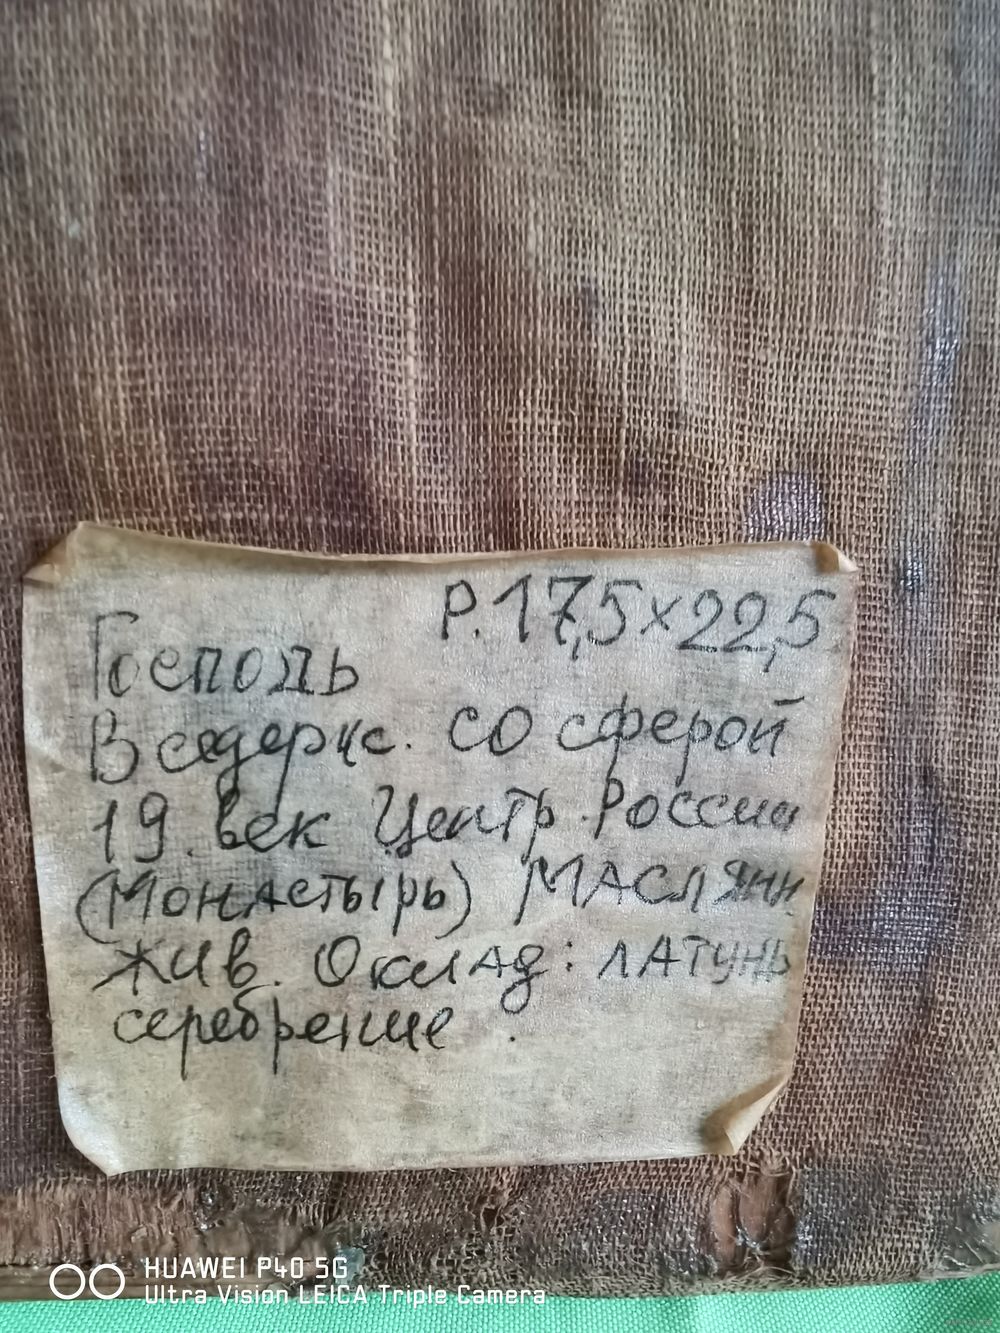 Р. 17,5×22,5
Господь
Вседерж. со сферой
19 век Центр. России
(Монастырь) Маслянн
жив. Оклад: латунь
серебрение.
HUAWEI P40 5G
Ultra Vision LEICA Triple Camera